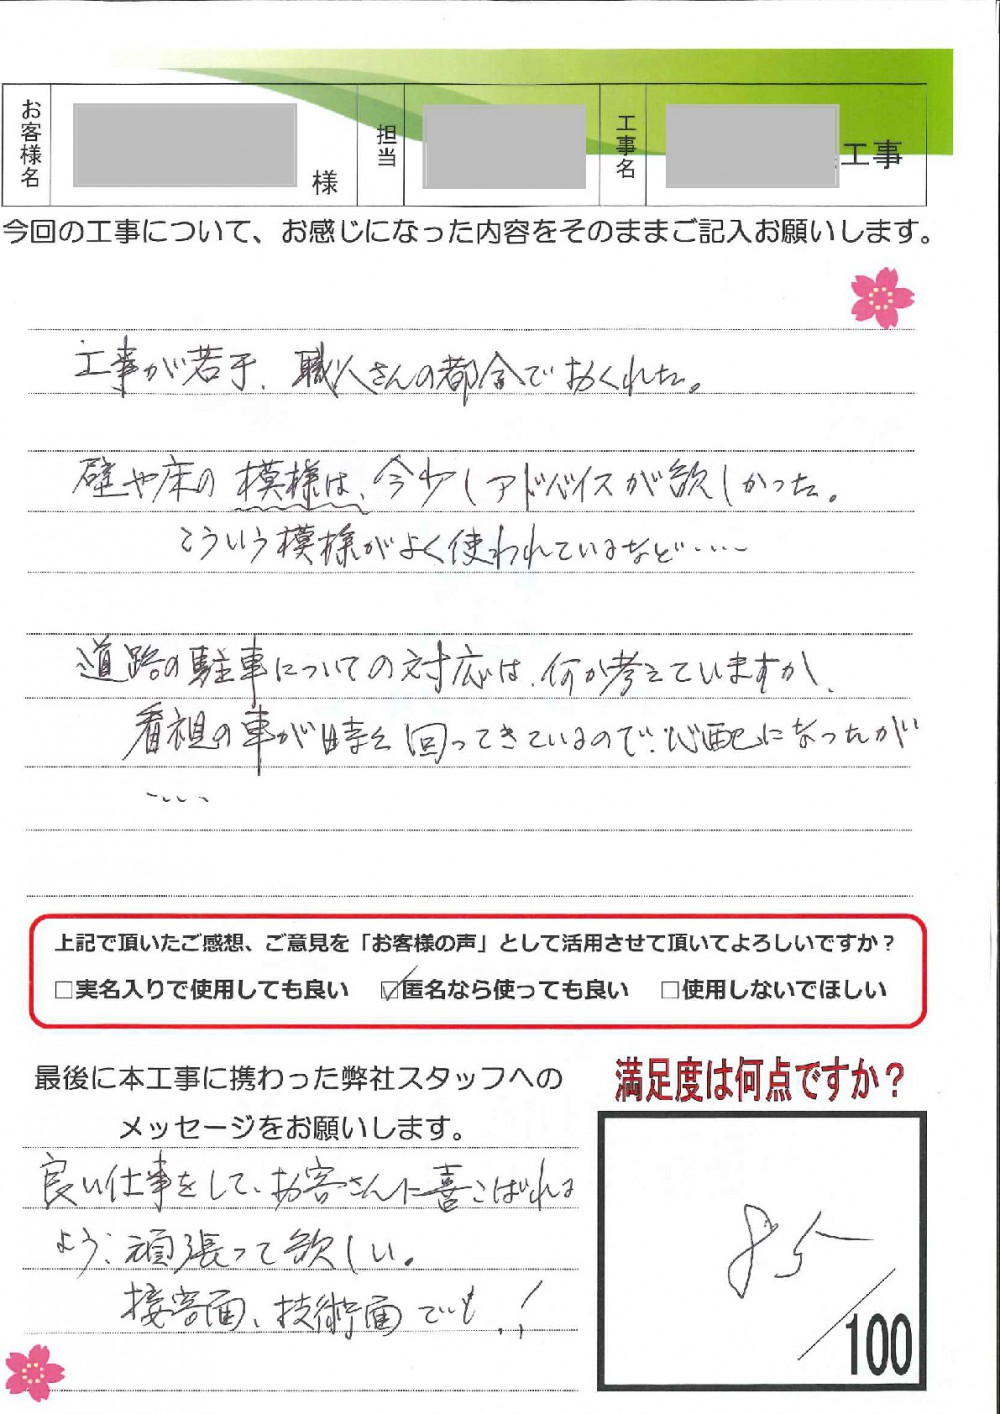 お客様名
様
担当
工事名
工事
今回の工事について、お感じになった内容をそのままご記入お願いします。
工事が若干、職人さんの都合でおくれた。
壁や床の模様は、今少しアドバイスが欲しかった。
こういう模様がよく使われているなど‥‥
道路の駐車についての対応は、何か考えていますか、
の車が時々回ってきているので、心配になったが
‥‥
上記で頂いたご感想、ご意見を「お客様の声」として活用させて頂いてよろしいですか？
□実名入りで使用しても良い ☑匿名なら使っても良い □使用しないでほしい
最後に本工事に携わった弊社スタッフへの
メッセージをお願いします。
良い仕事をして、お客さんに喜こばれる
よう、頑張って欲しい。
接客面、技術面でも！
満足度は何点ですか？
85
/100